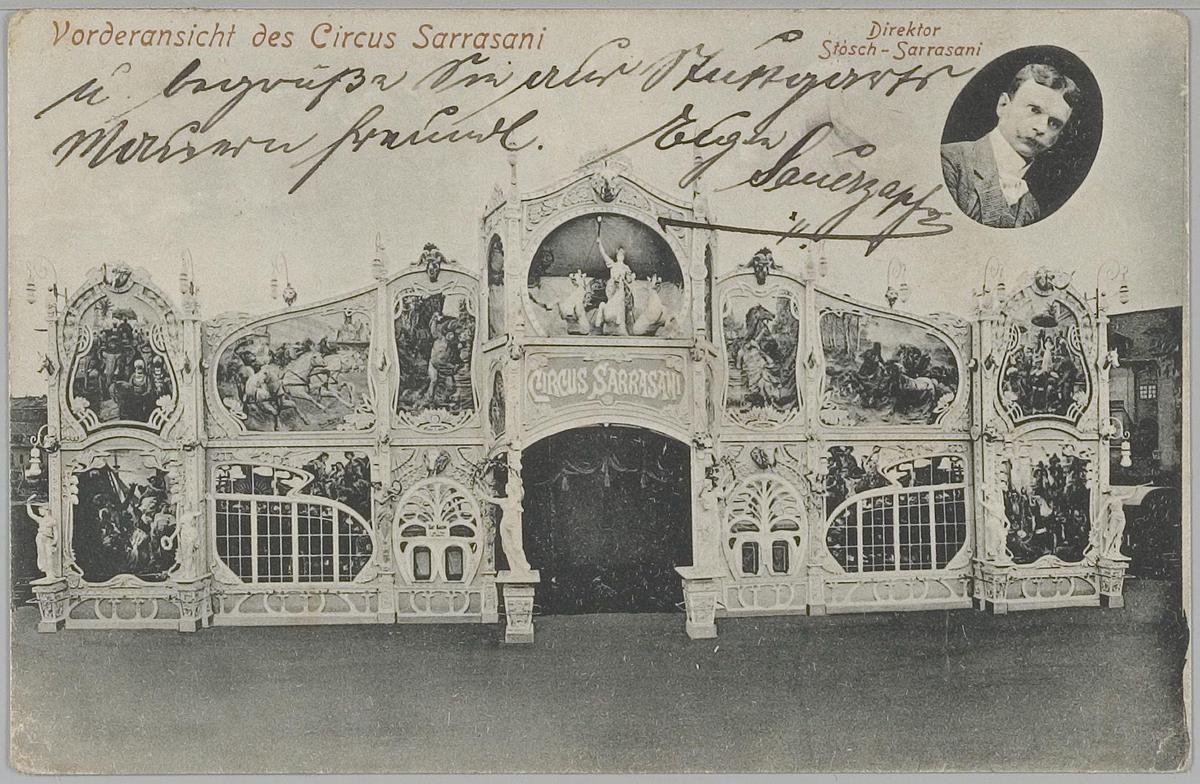 Vorderansicht des Circus Sarrasani
Direktor
Stosch-Sarrasani
u. begrüße Sie aus Stuttgarts
Mauern freundl. Eugen
Sauerzapf
CIRCUS SARRASANI